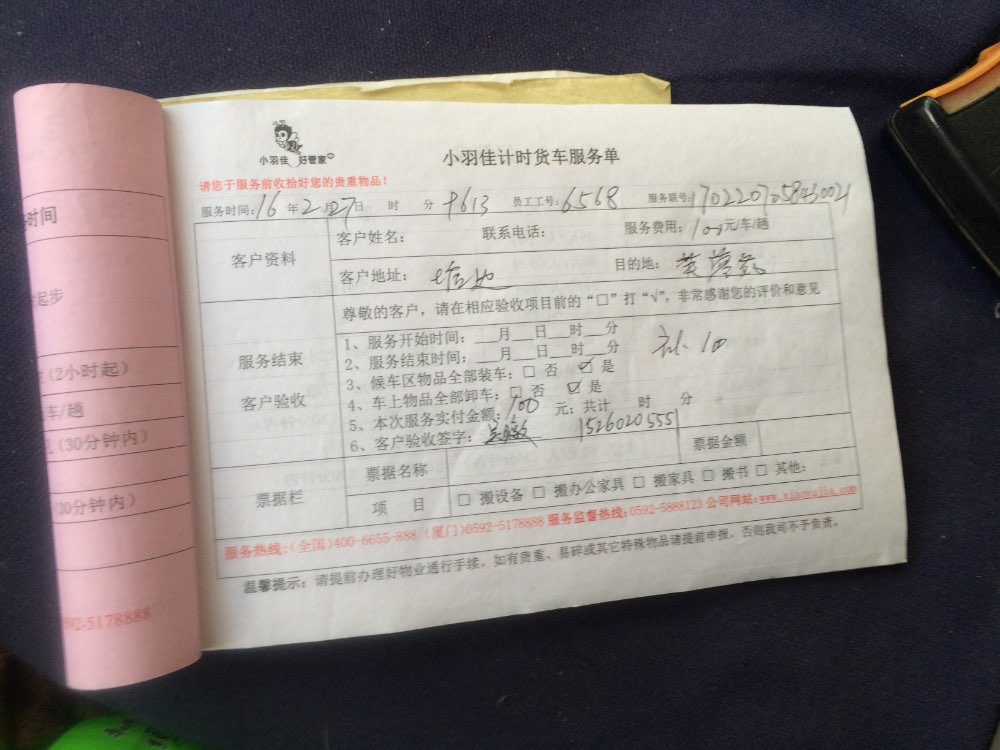 小羽佳 好管家
小羽佳计时货车服务单
请您于服务前收拾好您的贵重物品！
服务时间：16 年 2 月 27 日 时 分 9613 员工工号：6568 服务联号：
客户资料
客户姓名： 联系电话： 服务费用：100 元/车/趟
客户地址： 目的地：
服务结束
客户验收
尊敬的客户，请在相应验收项目前的“□”打“√”，非常感谢您的评价和意见
1、服务开始时间：___月___日___时___分
2、服务结束时间：___月___日___时___分
3、候车区物品全部装车：□ 否 ☑ 是
4、车上物品全部卸车：□ 否 ☑ 是
5、本次服务实付金额：100 元；共计 时 分
6、客户验收签字： 1526020555
票据栏
票据名称 票据金额
项 目 □ 搬设备 □ 搬办公家具 □ 搬家具 □ 搬书 □ 其他：
服务热线：(全国)400-6655-888 (厦门)0592-5178888 服务监督热线：0592-5888123 公司网站：www.xiaoyujia.com
温馨提示：请提前办理好物业通行手续，如有贵重、易碎或其它特殊物品请提前申报，否则我司不予负责。
时间
起步
(2小时起)
车/趟
(30分钟内)
30分钟内)
592-5178888